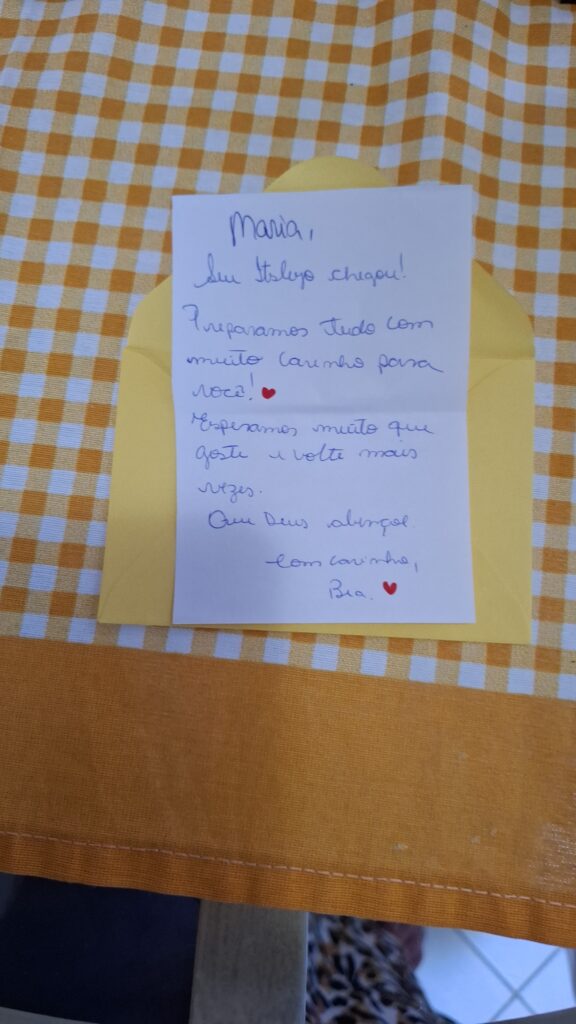 Maria,
Seu chegou!
Preparamos tudo com
muito carinho para
você!
Esperamos muito que
goste e volte mais
vezes.
Que Deus abençoe.
Com carinho,
Bia.